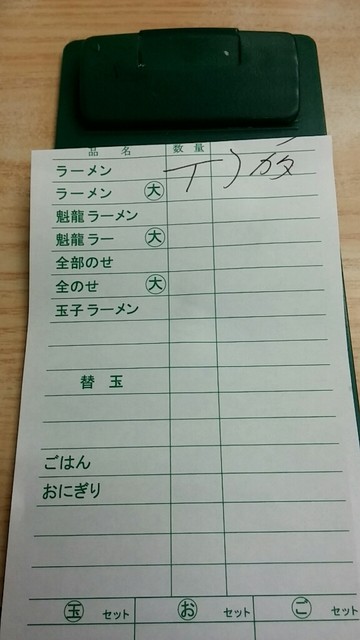 品名 数量
ラーメン
ラーメン 大
魁龍ラーメン
魁龍ラー 大
全部のせ
全のせ 大
玉子ラーメン
替玉
ごはん
おにぎり
玉 セット お セット ご セット